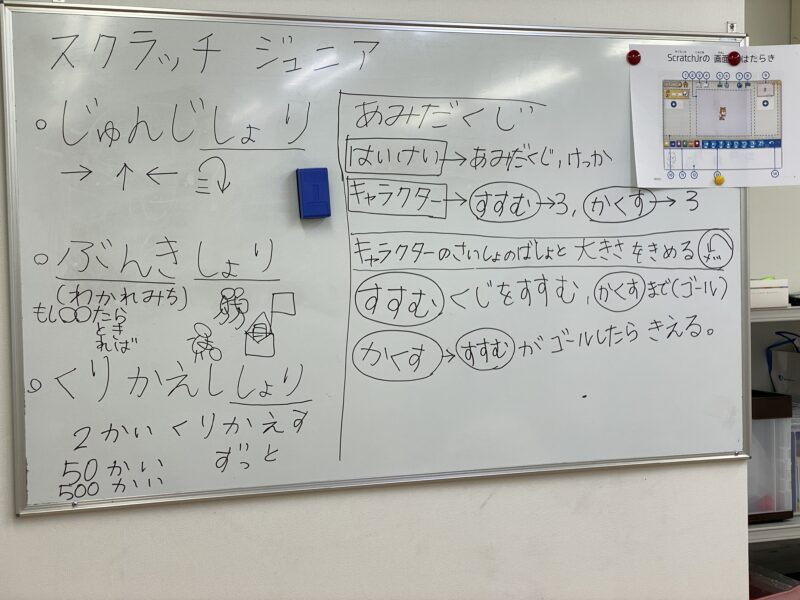 スクラッチ ジュニア
じゅんじしょり
ぶんきしょり
(わかれみち)
もし〇〇たら
とき
れば
くりかえししょり
2かい くりかえす
50かい ずっと
500かい
あみだくじ
はいけい→あみだくじ,けっか
キャラクター→すすむ→3,かくす→3
キャラクターのさいしょのばしょと大きさをきめる
すすむ くじをすすむ,かくすまで(ゴール)
かくす→すすむがゴールしたらきえる。
ScratchJrの画面 はたらき